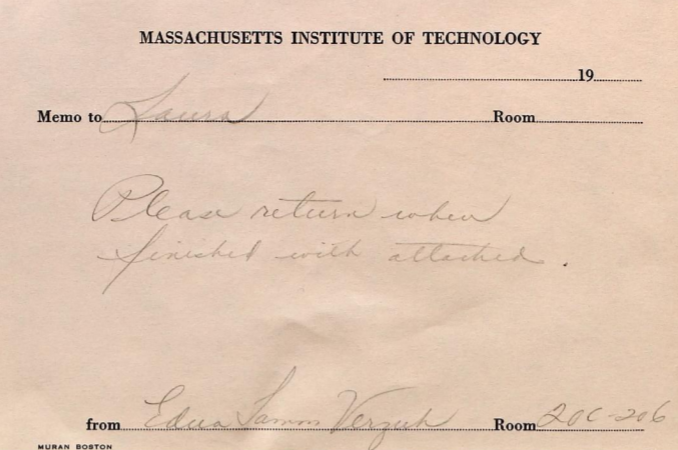 MASSACHUSETTS INSTITUTE OF TECHNOLOGY
19
Memo to Laura Room
Please return when
finished with attached.
from Edna Tamm Verzuh Room 20C-206
MURAN BOSTON